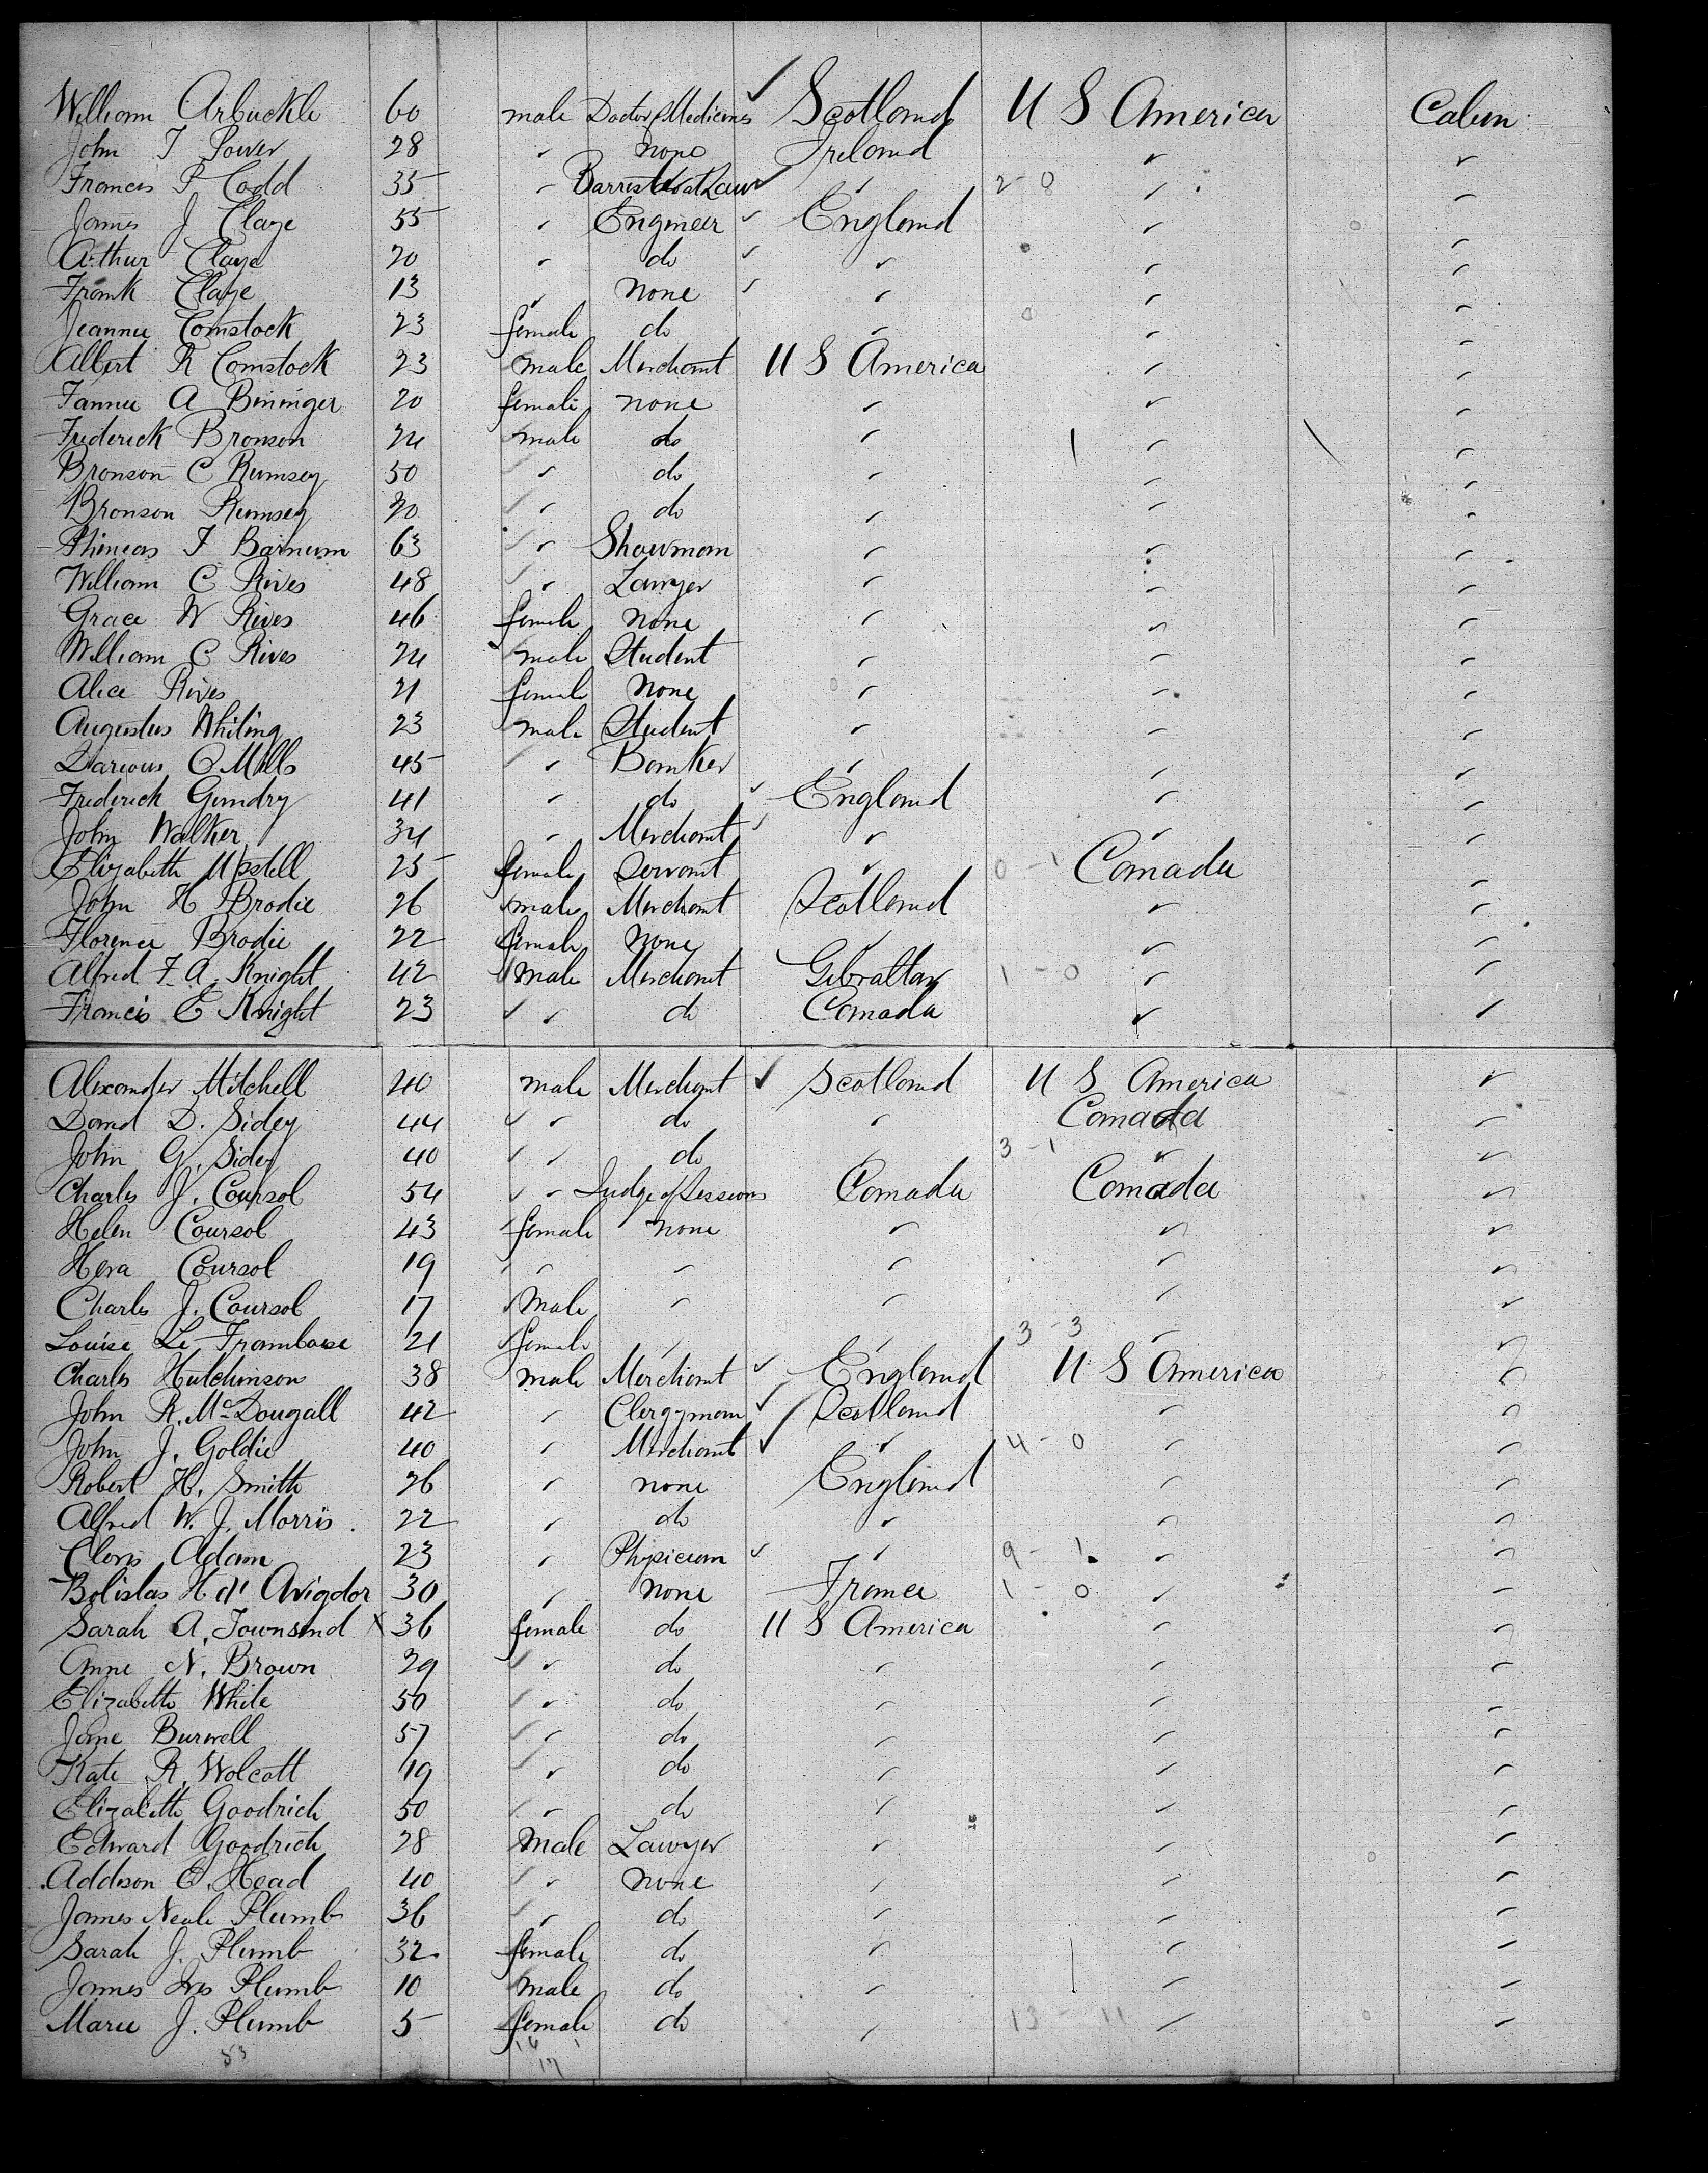 William Arbuckle 60 male Doctor of Medicine ✓ Scotland U S America Cabin
John T Power 28 " none Ireland " "
Francis P Codd 35 " Barrister at Law ✓ " 2-8 " "
James J Claye 55 " Engineer ✓ England " "
Arthur Claye 20 " do ✓ " " "
Frank Claye 13 " none ✓ " " "
Jeannie Comstock 23 female do " " "
Albert R Comstock 23 male Merchant U S America " "
Fannie A Bininger 20 female none " " "
Frederick Bronson 24 male do " " "
Bronson C Rumsey 50 " do " " "
Bronson Rumsey 20 " do " " "
Phineas T Barnum 63 " Showman " " "
William C Rives 48 " Lawyer " " "
Grace W Rives 46 female none " " "
William C Rives 24 male Student " " "
Alice Rives 21 female none " " "
Augustus Whiting 23 male Student " " "
Darious O Mills 45 " Banker " " "
Frederick Gundry 41 " do ✓ England " "
John Walker 34 " Merchant ✓ " " "
Elizabeth Upstell 25 female Servant " 0-1 Canada "
John H Brodie 26 male Merchant Scotland " "
Florence Brodie 22 female none " " "
Alfred F. A. Knight 42 male Merchant Gibraltar 1-0 " "
Francis E Knight 23 " do Canada " "
Alexander Mitchell 40 male Merchant ✓ Scotland U S America "
David D. Sidey 44 " do " Canada "
John G. Sidey 40 " do " 3-1 " "
Charles J. Coursol 54 " Judge of Sessions Canada Canada "
Helen Coursol 43 female none " " "
Hera Coursol 19 " " " " "
Charles J. Coursol 17 male " " " "
Louise Le Framboise 21 female " " 3-3 " "
Charles Hutchinson 38 male Merchant ✓ England U S America "
John R. McDougall 42 " Clergyman ✓ Scotland " "
John J. Goldie 40 " Merchant ✓ " 4-0 " "
Robert H. Smith 26 " none England " "
Alfred W. J. Morris. 22 " do " " "
Adam 23 " Physician ✓ " 9-1 " "
Bolislas H d' Avigdor 30 " none France 1-0 " "
Sarah A. Townsend X 36 female do U S America " "
Anne N. Brown 29 " do " " "
Elizabeth White 50 " do " " "
Jane Burwell 57 " do " " "
Kate R. Wolcott 19 " do " " "
Elizabeth Goodrich 50 " do " " "
Edward Goodrich 28 male Lawyer " " "
Addison C. Head 40 " none " " "
James Neale Plumb 36 " do " " "
Sarah J. Plumb 32 female do " " "
James Ives Plumb 10 male do " " "
Marie J. Plumb 5 female do " 13-11 " "
53 17